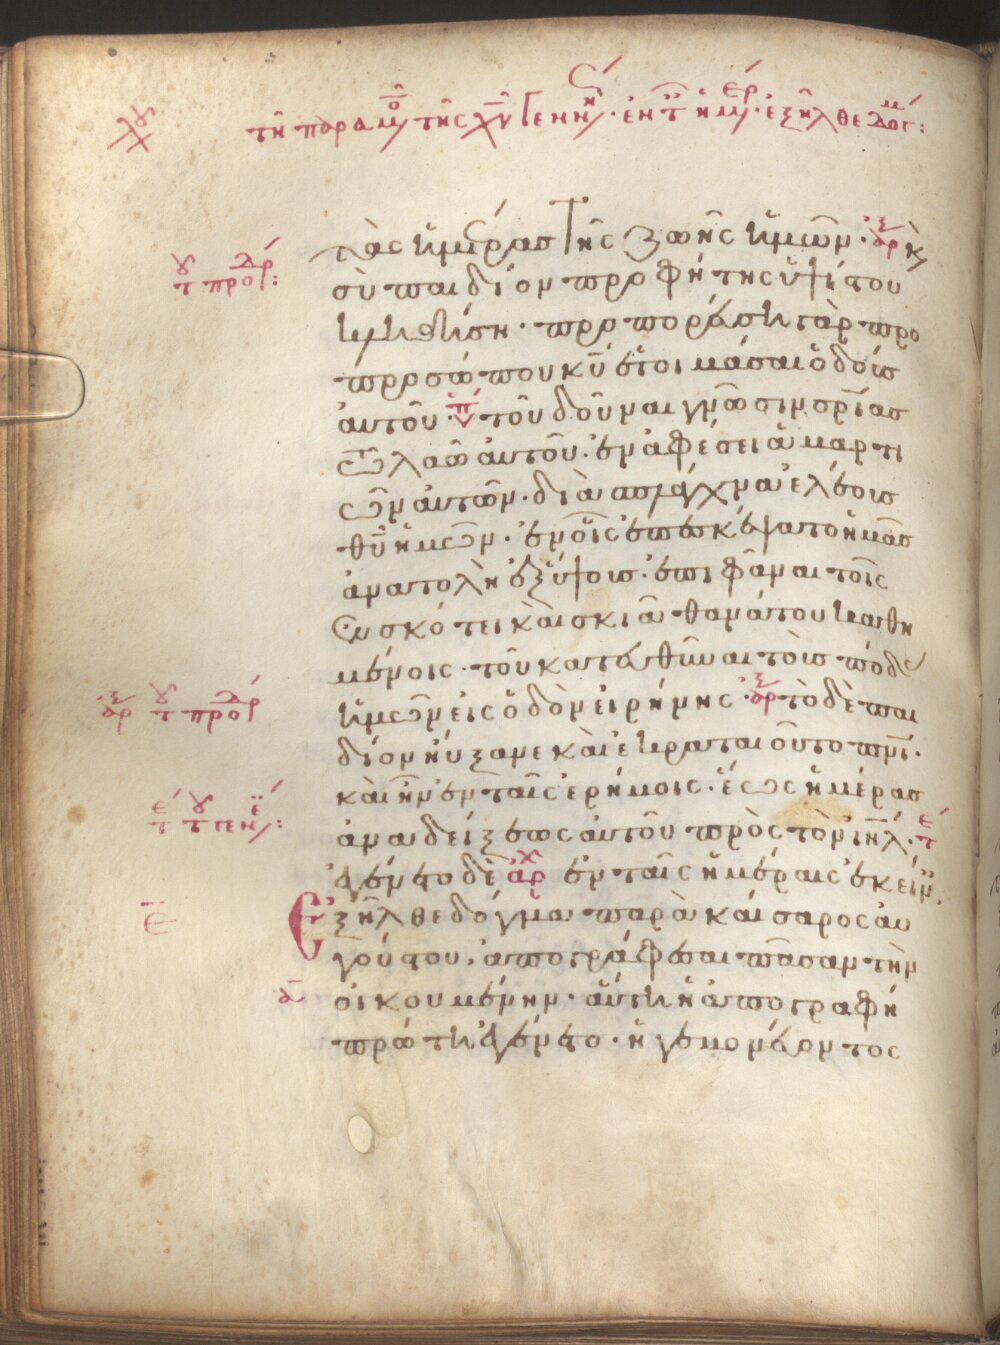 τῆ παραμ τῆς χυ γενν · ἐν τ ἡμ · ἐξῆλθε δογ:
τὰς ἡμέρας τῆς ζωῆς ἡμῶν · κ
σὺ παιδίον προφήτης ὑψίστου
κληθήση · προπορεύση γὰρ προ
προσώπου κυ ἑτοιμάσαι ὁδοὺς
αὐτοῦ · τοῦ δοῦναι γνῶσιν σριας
τῶ λαῶ αὐτοῦ · ἐν ἀφέσει ἁμαρτι
ῶν αὐτῶν · διὰ σπλάγχνα ἐλέους
θυ ἡμῶν · ἐν οἷς ἐπεσκέψατο ἡμᾶς
ἀνατολὴ ἐξ ὕψους · ἐπιφᾶναι τοῖς
ἐν σκότει καὶ σκιᾶ θανάτου καθη
μένοις · τοῦ κατευθῦναι τοὺς πόδας
ἡμῶν εἰς ὁδὸν εἰρήνης · τὸ δὲ παι
δίον ηὔξανε καὶ ἐκραταιοῦτο πνι ·
καὶ ἦν ἐν ταῖς ἐρήμοις · ἕως ἡμέρας
ἀναδείξεως αὐτοῦ πρὸς τὸν ιηλ ·
ἐγένετο δὲ ἀρχ ἐν ταῖς ἡμέραις ἐκείν
Ἐξῆλθε δόγμα παρὰ καίσαρος αὐ
γούστου, ἀπογράφεσαι πᾶσαν τὴν
οἰκουμένην · αὕτη ἡ ἀπογραφὴ
πρώτη ἐγένετο · ἡγεμονέυοντος